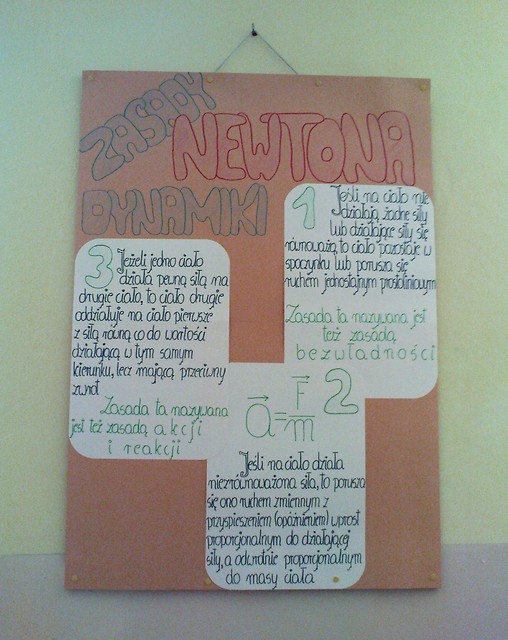 ZASADY
NEWTONA
DYNAMIKI
1 Jeśli na ciało nie
działają żadne siły
lub działające siły się
równoważą, to ciało pozostaje w
spoczynku lub porusza się
ruchem jednostajnym prostoliniowym
Zasada ta nazywana jest
też zasadą
bezwładności
3 Jeżeli jedno ciało
działa pewną siłą na
drugie ciało, to ciało drugie
oddziałuje na ciało pierwsze
z siłą równą co do wartości
działającą w tym samym
kierunku, lecz mającą przeciwny
zwrot
Zasada ta nazywana
jest też zasadą akcji
i reakcji
2
a = F/m
Jeśli na ciało działa
niezrównoważona siła, to porusza
się ono ruchem zmiennym z
przyspieszeniem (opóźnieniem) wprost
proporcjonalnym do działającej
siły, a odwrotnie proporcjonalnym
do masy ciała